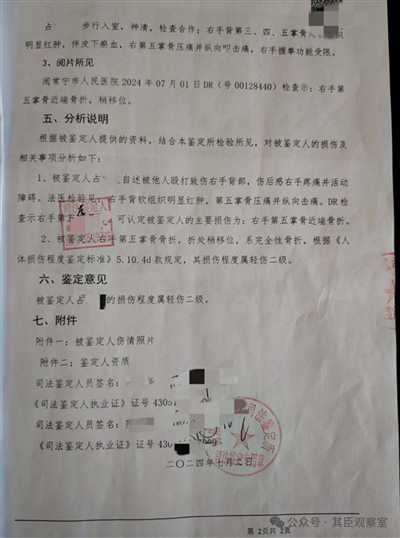 占 步行入室，神清，检查合作；右手背第三、四、五掌骨
明显红肿，伴皮下瘀血，右第五掌骨压痛并纵向叩击痛，右手握拳功能受限。
3、阅片所见
阅常宁市人民医院 2024 年 07 月 01 日 DR（号 00128440）检查示：右手第
五掌骨近端骨折，稍移位。
五、分析说明
根据被鉴定人提供的资料，结合本鉴定所检验所见，对被鉴定人的损伤及
相关事项分析如下：
1、被鉴定人占 自述被他人殴打致伤右手背部，伤后感右手疼痛并活动
障碍。法医检验见 右手背软组织明显红肿，第五掌骨压痛并纵向叩击痛。DR检
查示右手第 可认定被鉴定人的主要损伤为：右手第五掌骨近端骨折。
2、被鉴定人右手第五掌骨骨折，折处稍移位，系完全性骨折，根据《人
体损伤程度鉴定标准》5.10.4d 款规定，其损伤程度属轻伤二级。
六、鉴定意见
被鉴定人占 的损伤程度属轻伤二级。
七、附件
附件一：被鉴定人伤情照片
附件二：鉴定人资质
司法鉴定人员签名：
《司法鉴定人执业证》证号 4305
司法鉴定人员签名：
《司法鉴定人执业证》证号 430
二〇二四年七月二日
第 2页共 2页
公众号·其臣观察室